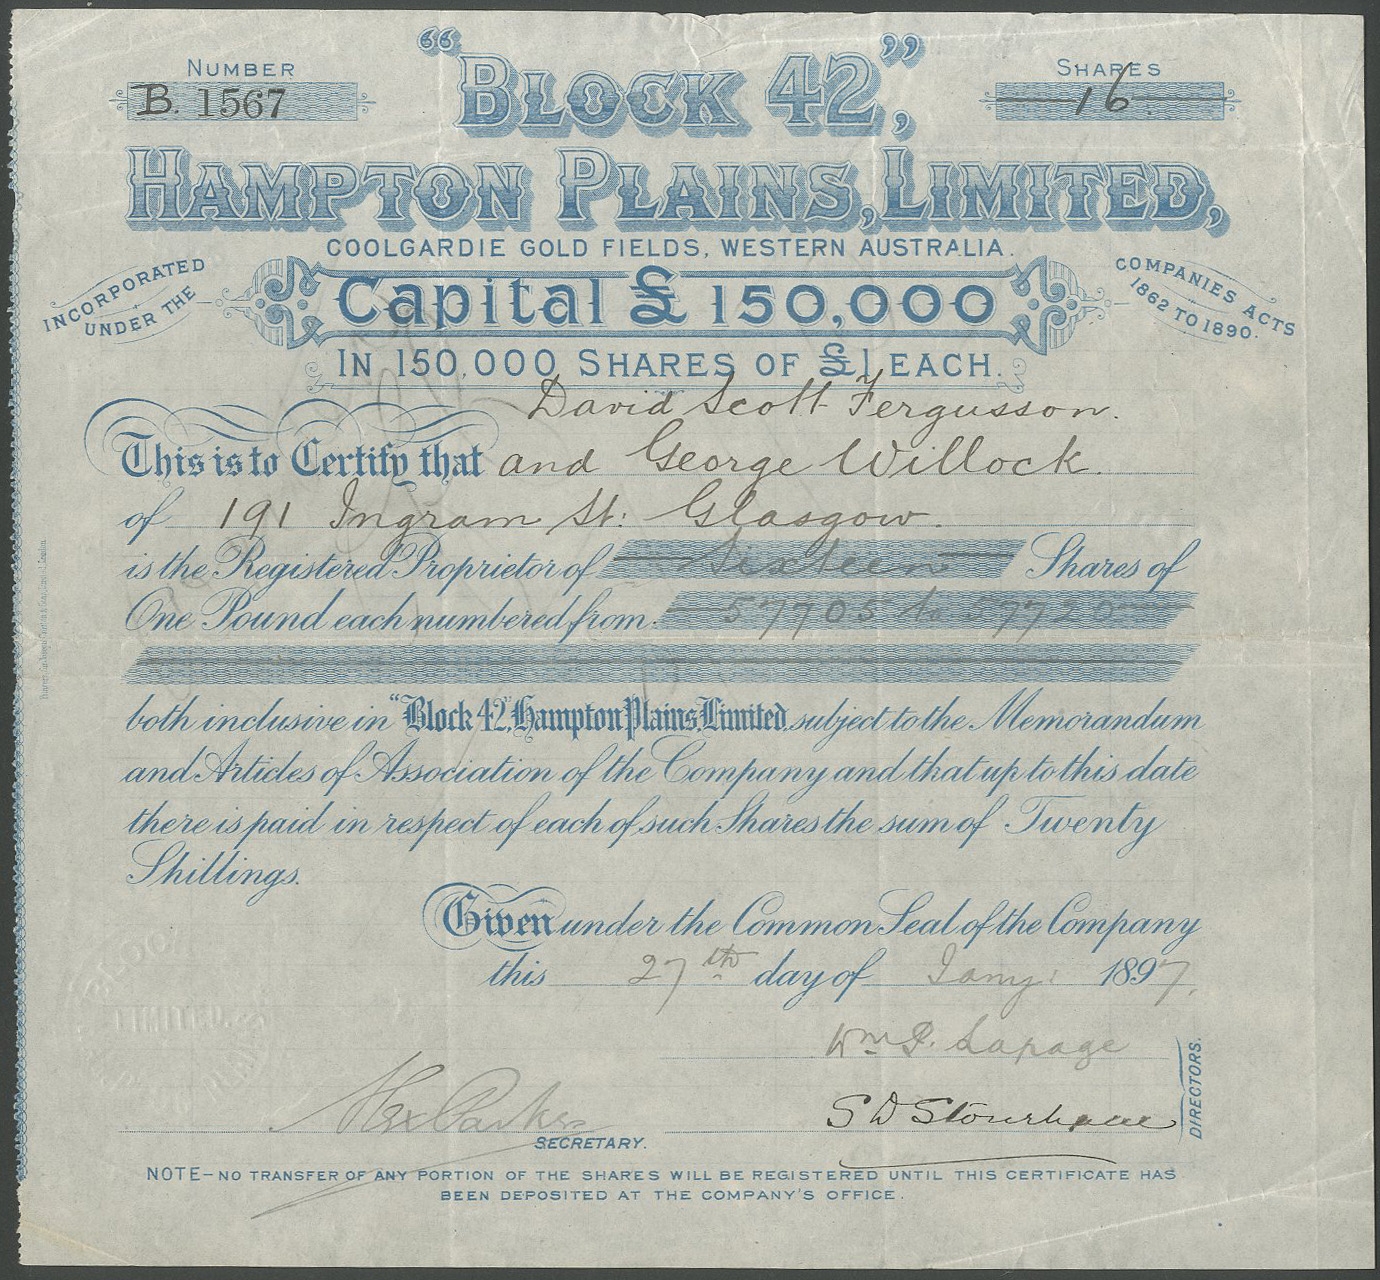 NUMBER
B. 1567
"BLOCK 42",
SHARES
16
HAMPTON PLAINS, LIMITED,
COOLGARDIE GOLD FIELDS, WESTERN AUSTRALIA.
INCORPORATED UNDER THE
COMPANIES ACTS 1862 TO 1890.
Capital £ 150,000
IN 150,000 SHARES OF £1 EACH.
David Scott Fergusson.
This is to Certify that and George Willock.
of 191 Ingram St: Glasgow.
is the Registered Proprietor of Sixteen Shares of
One Pound each numbered from 57705 to 57720
both inclusive in "Block 42", Hampton Plains, Limited, subject to the Memorandum
and Articles of Association of the Company and that up to this date
there is paid in respect of each of such Shares the sum of Twenty
Shillings.
Given under the Common Seal of the Company
this 27th day of Jany: 1897.
Wm P. Lapage
S D Stourh
DIRECTORS.
SECRETARY.
NOTE—NO TRANSFER OF ANY PORTION OF THE SHARES WILL BE REGISTERED UNTIL THIS CERTIFICATE HAS
BEEN DEPOSITED AT THE COMPANY'S OFFICE.
LIMITED.